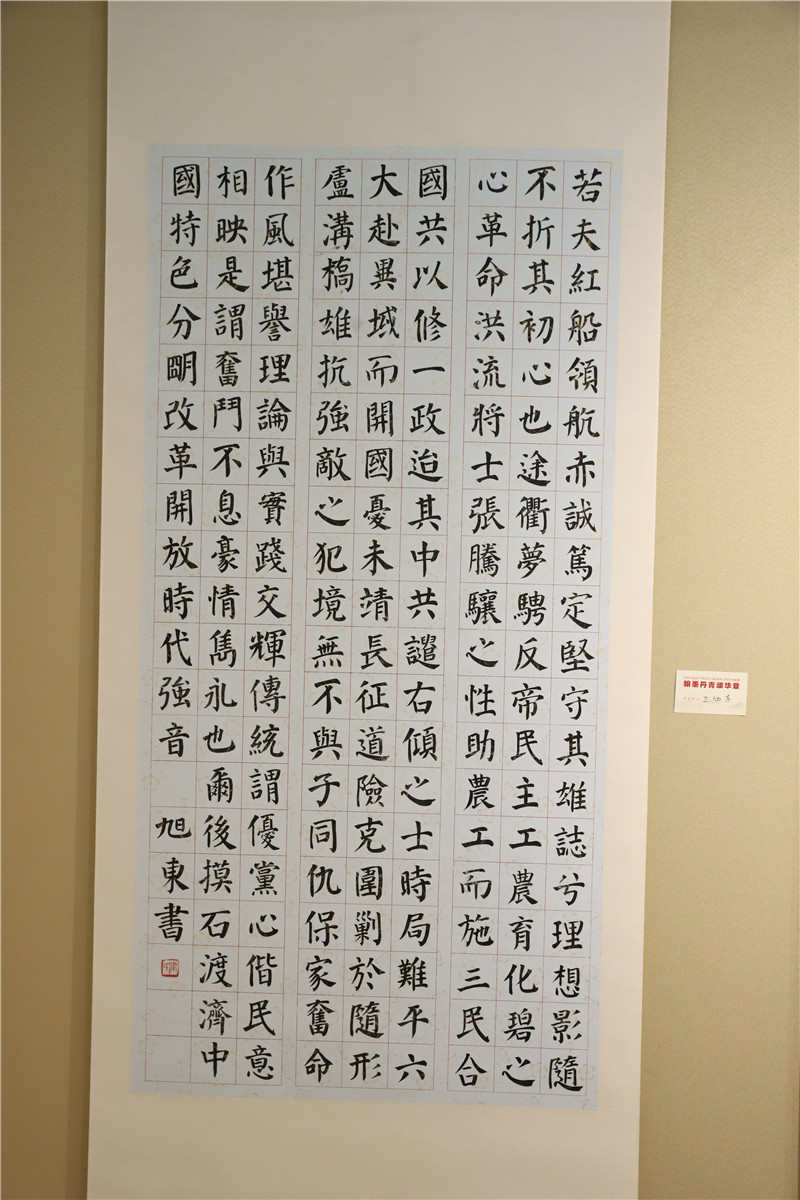 若夫紅船領航赤誠篤定堅守其雄誌兮理想影隨
不折其初心也途衢夢騁反帝民主工農育化碧之
心革命洪流將士張騰驤之性助農工而施三民合
國共以修一政迨其中共譴右傾之士時局難平六
大赴異域而開國憂未靖長征道險克圍剿於隨形
盧溝橋雄抗強敵之犯境無不與子同仇保家奮命
作風堪譽理論與實踐交輝傳統謂優黨心偕民意
相映是謂奮鬥不息豪情雋永也爾後摸石渡濟中
國特色分明改革開放時代強音
旭東書
翰墨丹青颂华章